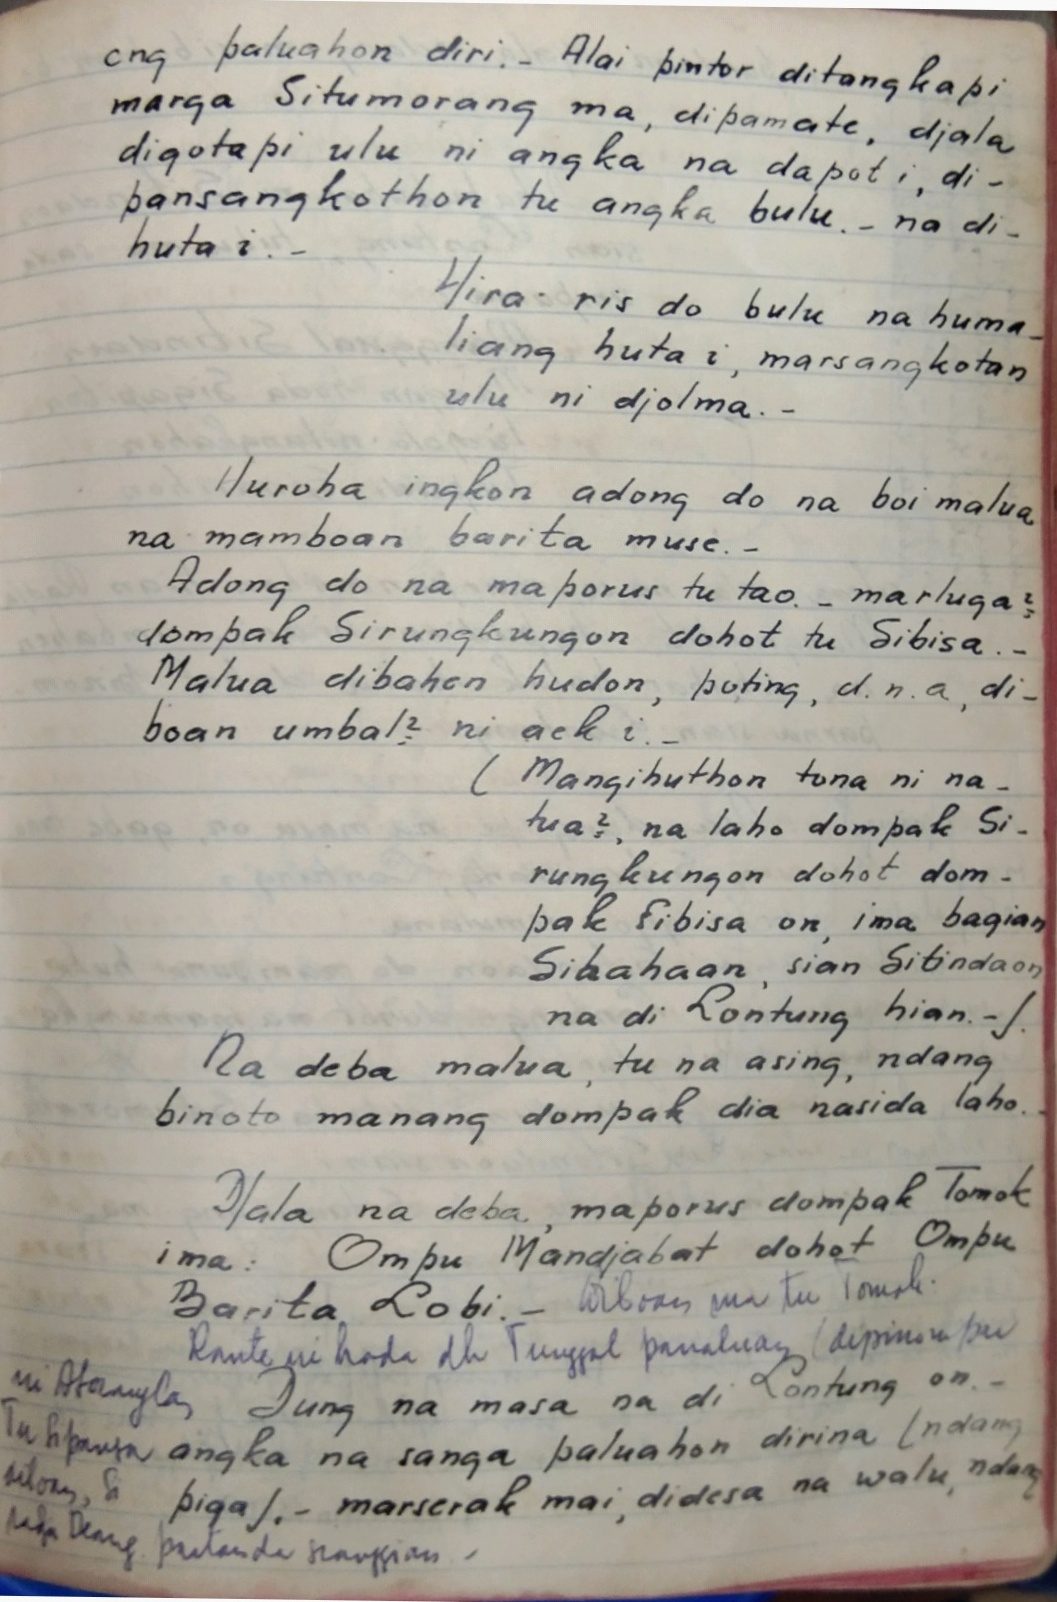 ong paluahon diri. - Alai pintor ditangkapi
marga Situmorang ma, dipamate, djala
digotapi ulu ni angka na dapot i, di-
pansangkothon tu angka bulu. - na di-
huta i. -
Hira-ris do bulu na huma-
liang huta i, marsangkotan
ulu ni djolma. -
Huroha ingkon adong do na boi malua
na mamboan barita muse. -
Adong do na maporus tu tao. - marluga²
dompak Sirungkungon dohot tu Sibisa. -
Malua dibahen hudon, poting, d.n.a, di-
boan umbal² ni aek i. -
( Mangihuthon tona ni na-
tua², na laho dompak Si-
rungkungon dohot dom-
pak Sibisa on, ima bagian
Sihahaan, sian Sitindaon
na di Lontung hian. -).
Na deba malua, tu na asing, ndang
binoto manang dompak dia nasida laho. -
Djala na deba, maporus dompak Tomok
ima: Ompu Mandjabat dohot Ompu
Barita Lobi. - diboan ma tu Tomok.
Rante ni hoda dh Tunggal panaluan
ni
Dung na masa na di Lontung on. -
Tu
angka na sanga paluahon dirina (ndang
piga). - marserak mai, didesa na walu, ndang